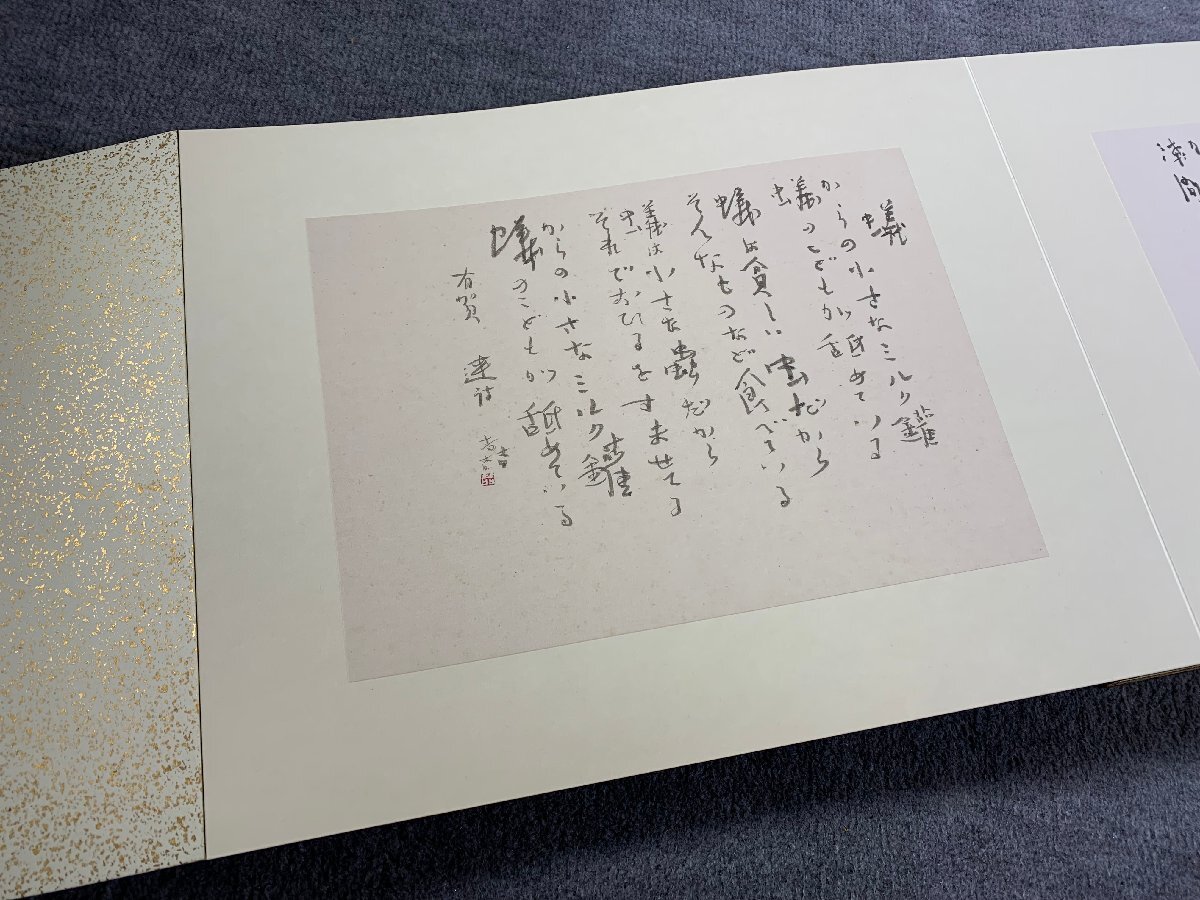 蟻
からの小さなミルク罐
蟻のこどもが舐めている
蟻は貪しい虫だから
そんなものなど食べている
蟻は小さな蟲だから
それでおひるをすませてる
からの小さなミルク罐
蟻のこどもが舐めている
有賀 連 詩